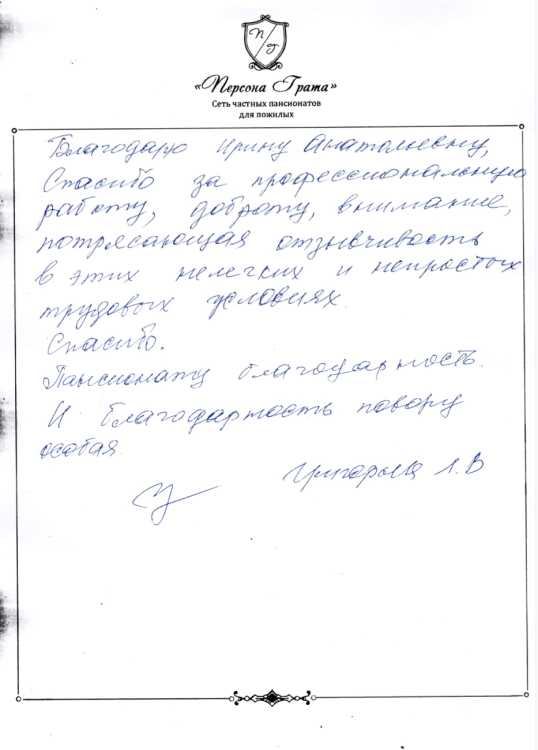 П Г
«Персона Грата»
Сеть частных пансионатов
для пожилых
Благодарю Ирину Анатольевну,
Спасибо за профессиональную
работу, доброту, внимание,
потрясающая отзывчивость
в этих нелегких и непростых
трудовых условиях.
Спасибо.
Пансионату благодарность.
И благодарность повору
особая.
Григорьева Л.В